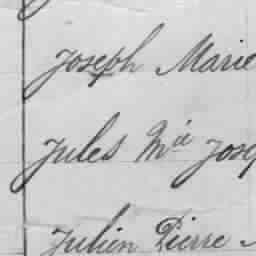 Joseph Marie
Jules Mie Jose
Julien Pierre